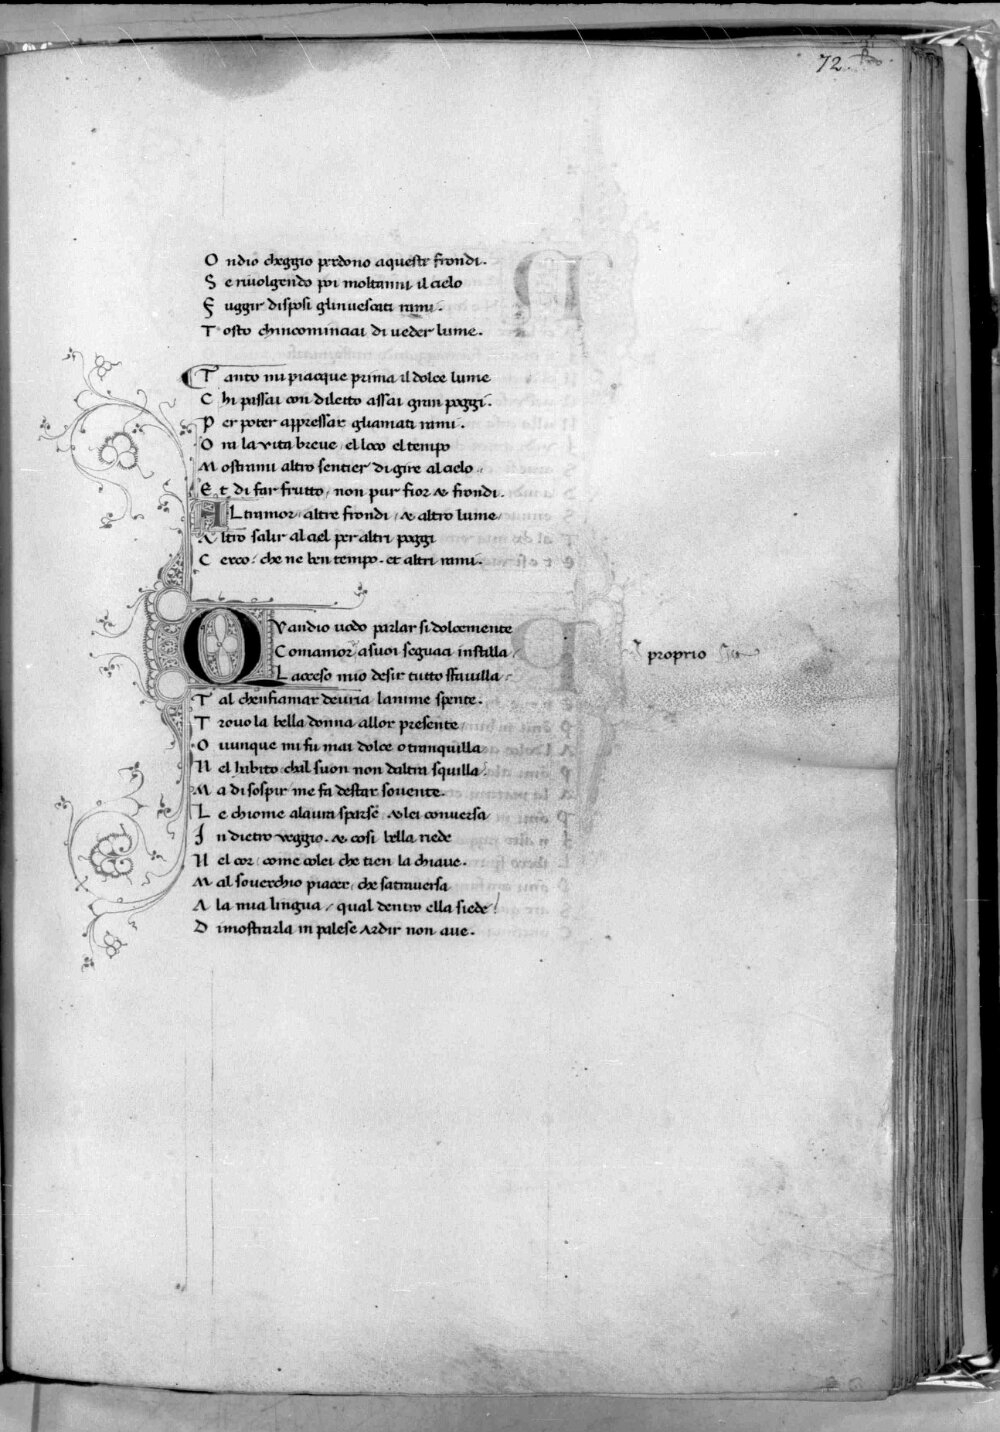 72.
Ondio cheggio perdono a queste frondi.
Se rivolgendo poi moltanni il cielo
Fuggir disposi glinvescati rami.
Tosto chincominciai di veder lume.
Tanto mi piacque prima il dolce lume
Chi passai con diletto assai gran poggi.
Per poter appressar gliamati rami.
Ora la vita breve el loco el tempo
Mostranmi altro sentier di gire al cielo
Et di far frutto non pur fior & frondi.
Altramor altre frondi & altro lume
Altro salir al ciel per altri poggi
Cerco che ne ben tempo. et altri rami.
Quandio vodo parlar si dolcemente
Comamor a suoi seguaci instilla
Lacceso mio desir tutto sfavilla
Tal chenfiamar devria lanime spente.
Trovo la bella donna allor presente
Ovunque mi fu mai dolce o tranquilla
Nel habito chal suon non daltra squilla
Ma di sospir me fa destar sovente.
Le chiome alaura sparse & lei conversa
In dietro veggio. & cosi bella riede
Nel cor come colei che tien la chiave.
Mal soverchio piacer che satraversa
Ala mia lingua qual dentro ella siede
Dimostrarla in palese ardir non ave.
proprio